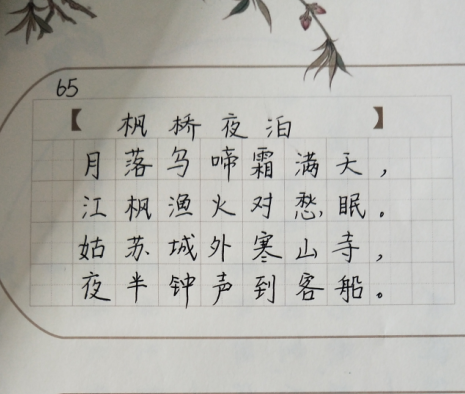 65
【枫桥夜泊】
月落乌啼霜满天，
江枫渔火对愁眠。
姑苏城外寒山寺，
夜半钟声到客船。